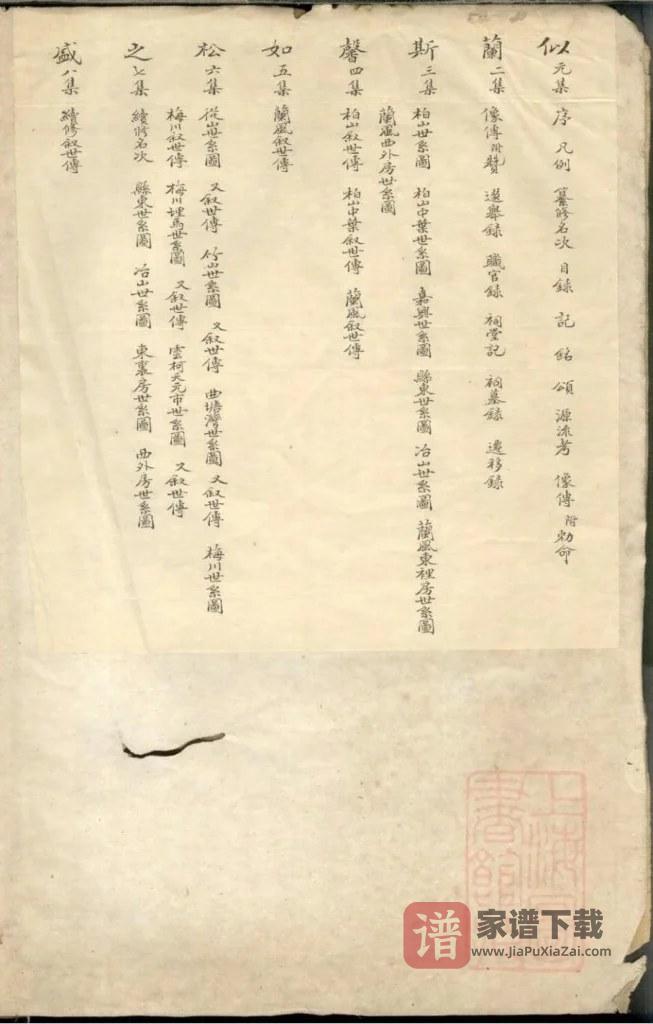 似 元集 序 凡例 纂修名次 目録 記 銘 頌 源流考 像傳 附勅命
蘭 二集 像傳附贊 選舉録 職官録 祠堂記 祠墓録 遷移録
斯 三集 柏山世系圖 柏山中葉世系圖 嘉興世系圖 縣東世系圖 冶山世系圖 蘭風東裡房世系圖
蘭風西外房世系圖
馨 四集 柏山叙世傳 柏山中葉叙世傳 蘭風叙世傳
如 五集 蘭風叙世傳
松 六集 從山世系圖 又叙世傳 竹山世系圖 又叙世傳 曲塘灣世系圖 又叙世傳 梅川世系圖
梅川叙世傳 梅川埋馬世系圖 又叙世傳 雲柯天元市世系圖 又叙世傳
之 七集 續修名次 縣東世系圖 冶山世系圖 東裏房世系圖 西外房世系圖
盛 八集 續修叙世傳
上海
書館
谱 家谱下载
www.JiaPuXiaZai.com